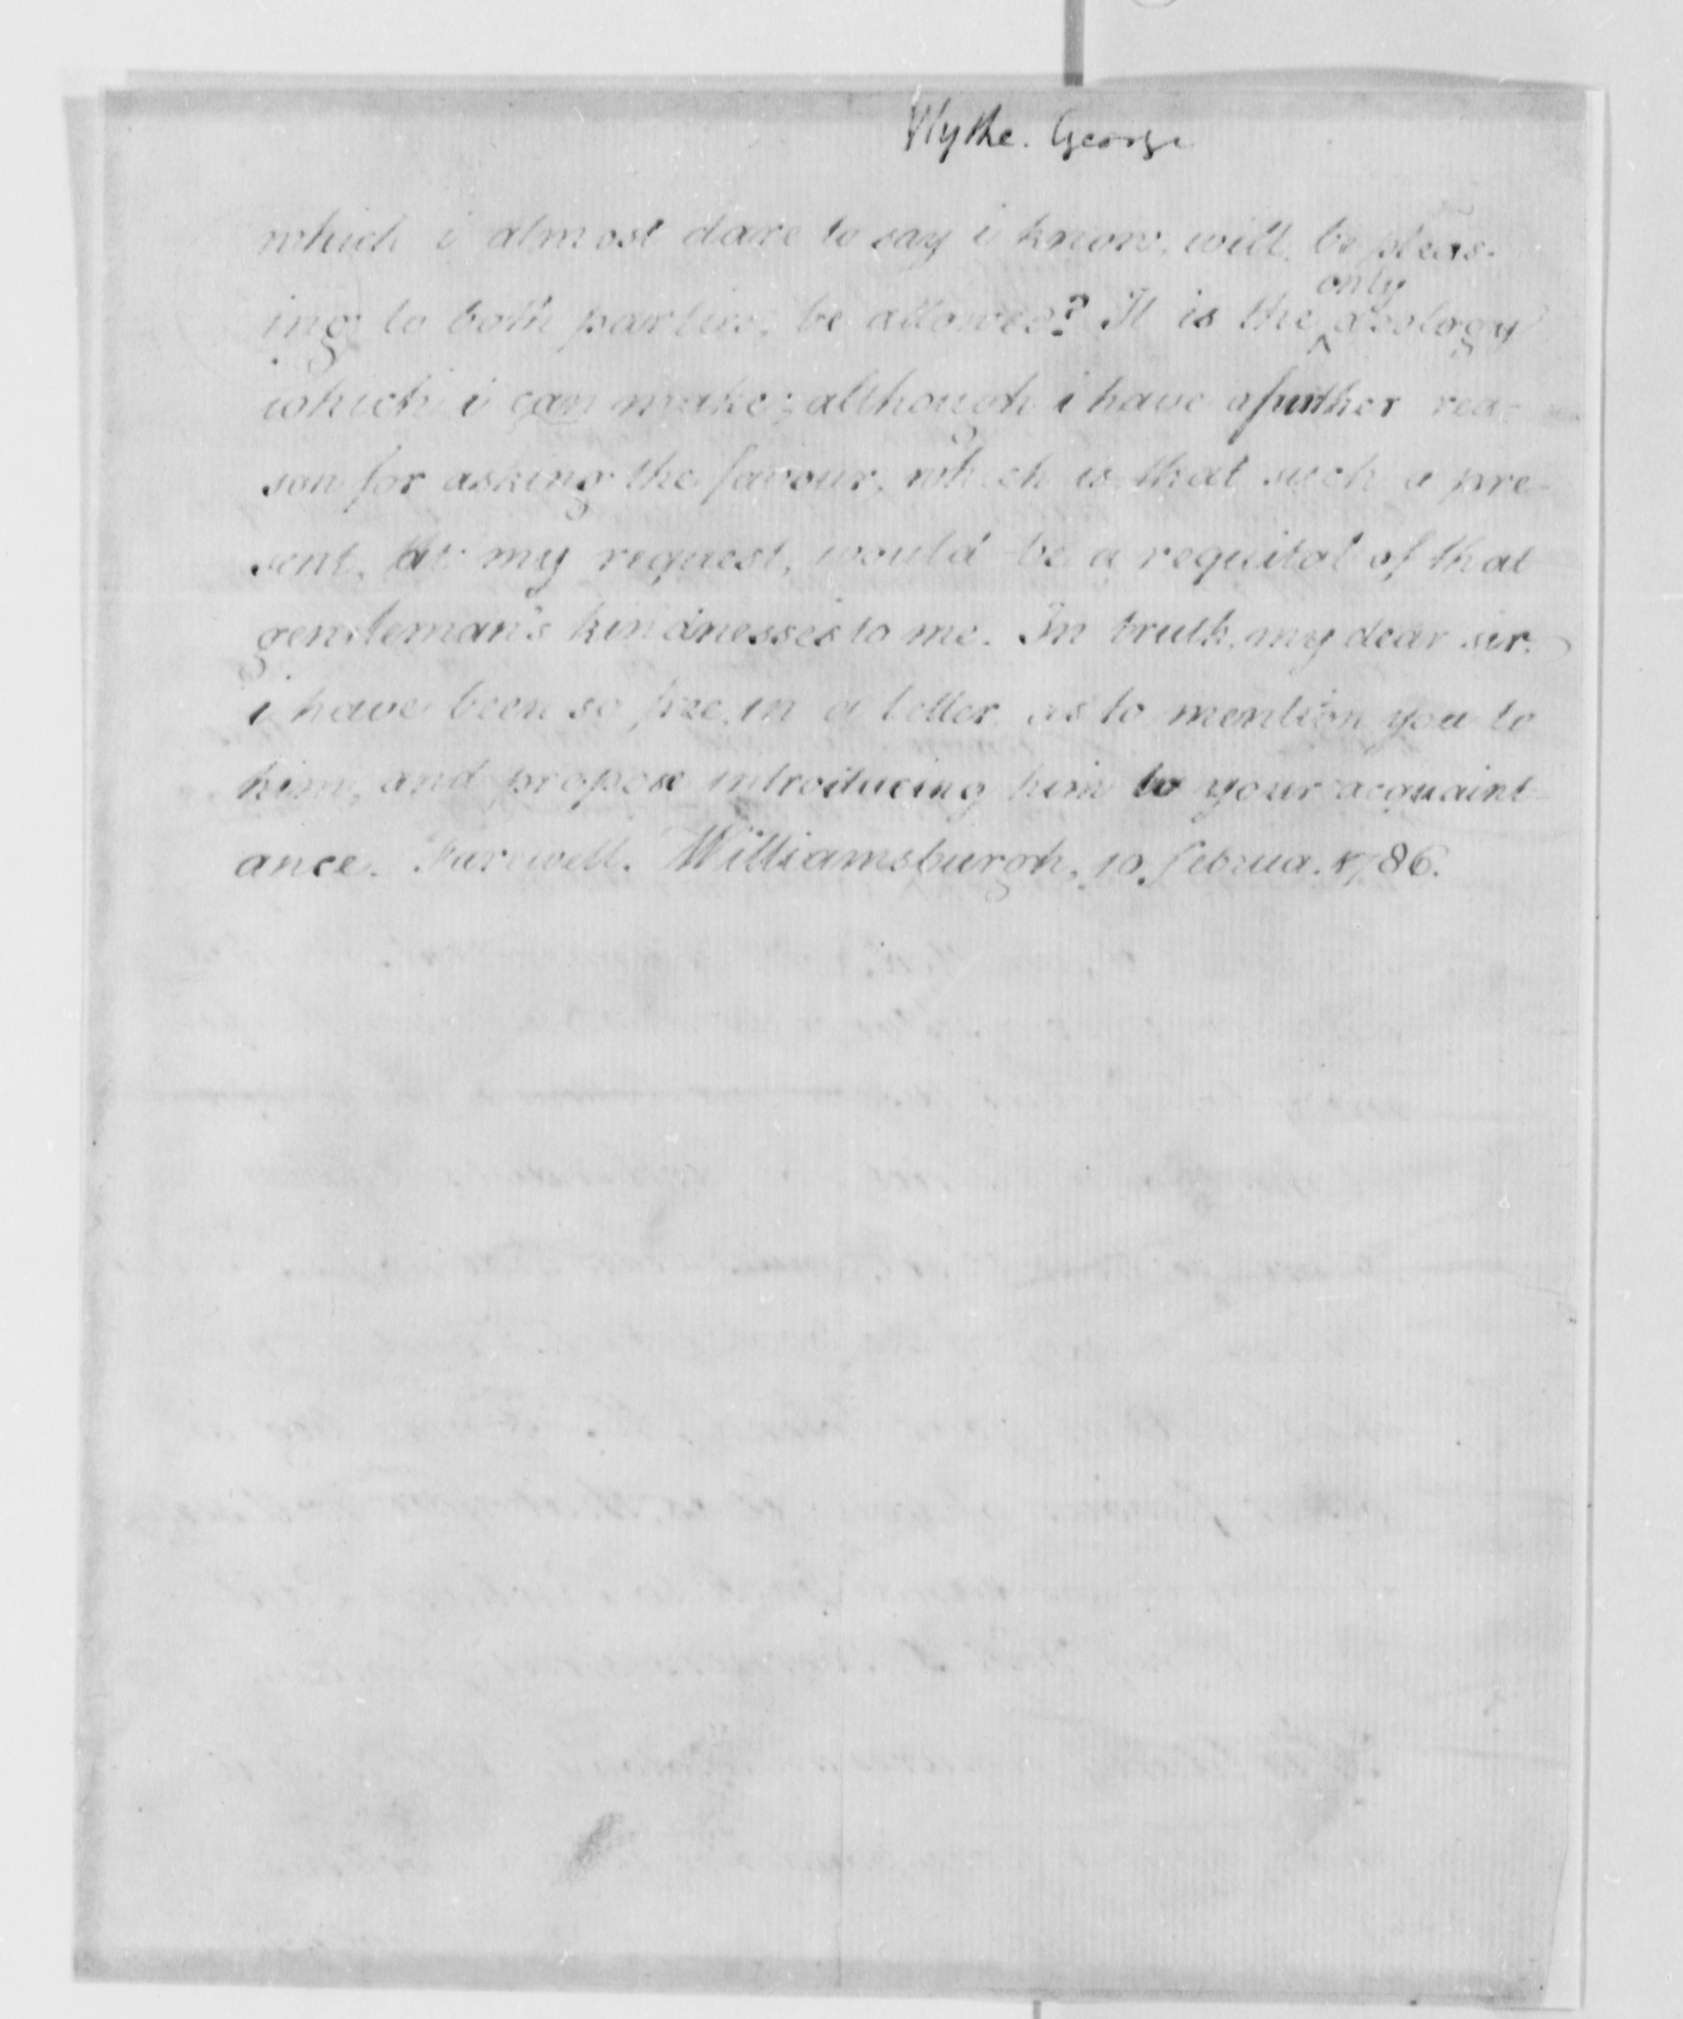 Wythe. George
which i almost dare to say i know, will be pleas-
only
ing to both parties, be allowed? It is the ^ apology
which i can make; although i have a further rea-
son for asking the favour, which is that such a pre-
sent, at my request, would be a requital of that
gentleman's kindnesses to me. In truth, my dear sir,
i have been so free, in a letter, as to mention you to
him, and propose introducing him to your acquaint-
ance. Farewell. Williamsburgh, 10 februa. 1786.